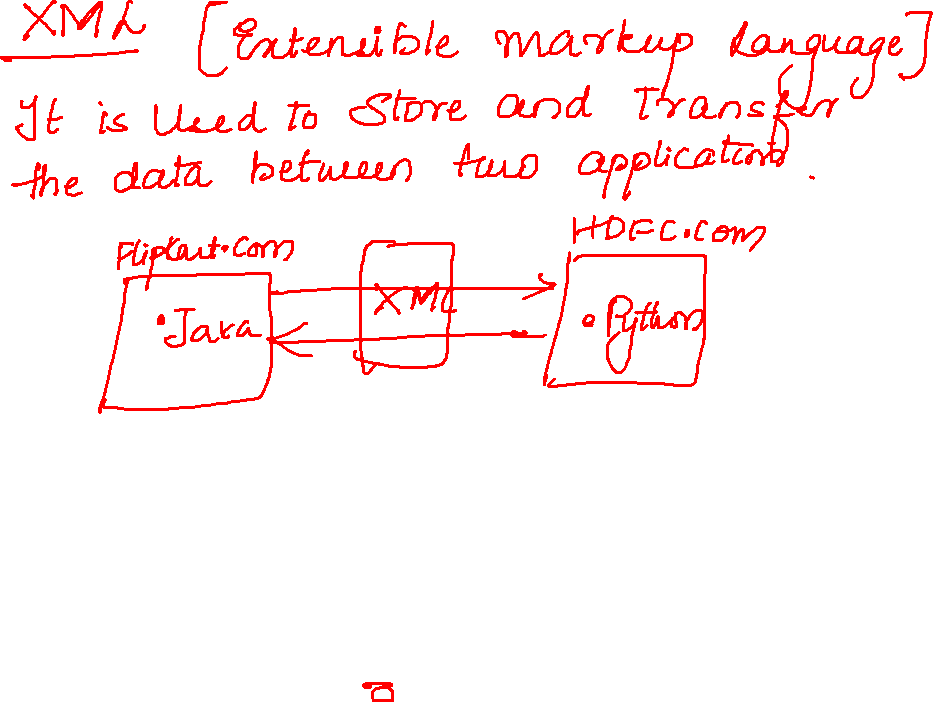 XML [Extensible markup Language]
It is Used To Store and Transfer
the data between two applications.
Flipkart.com
HDFC.com
XML
.Java
.Python